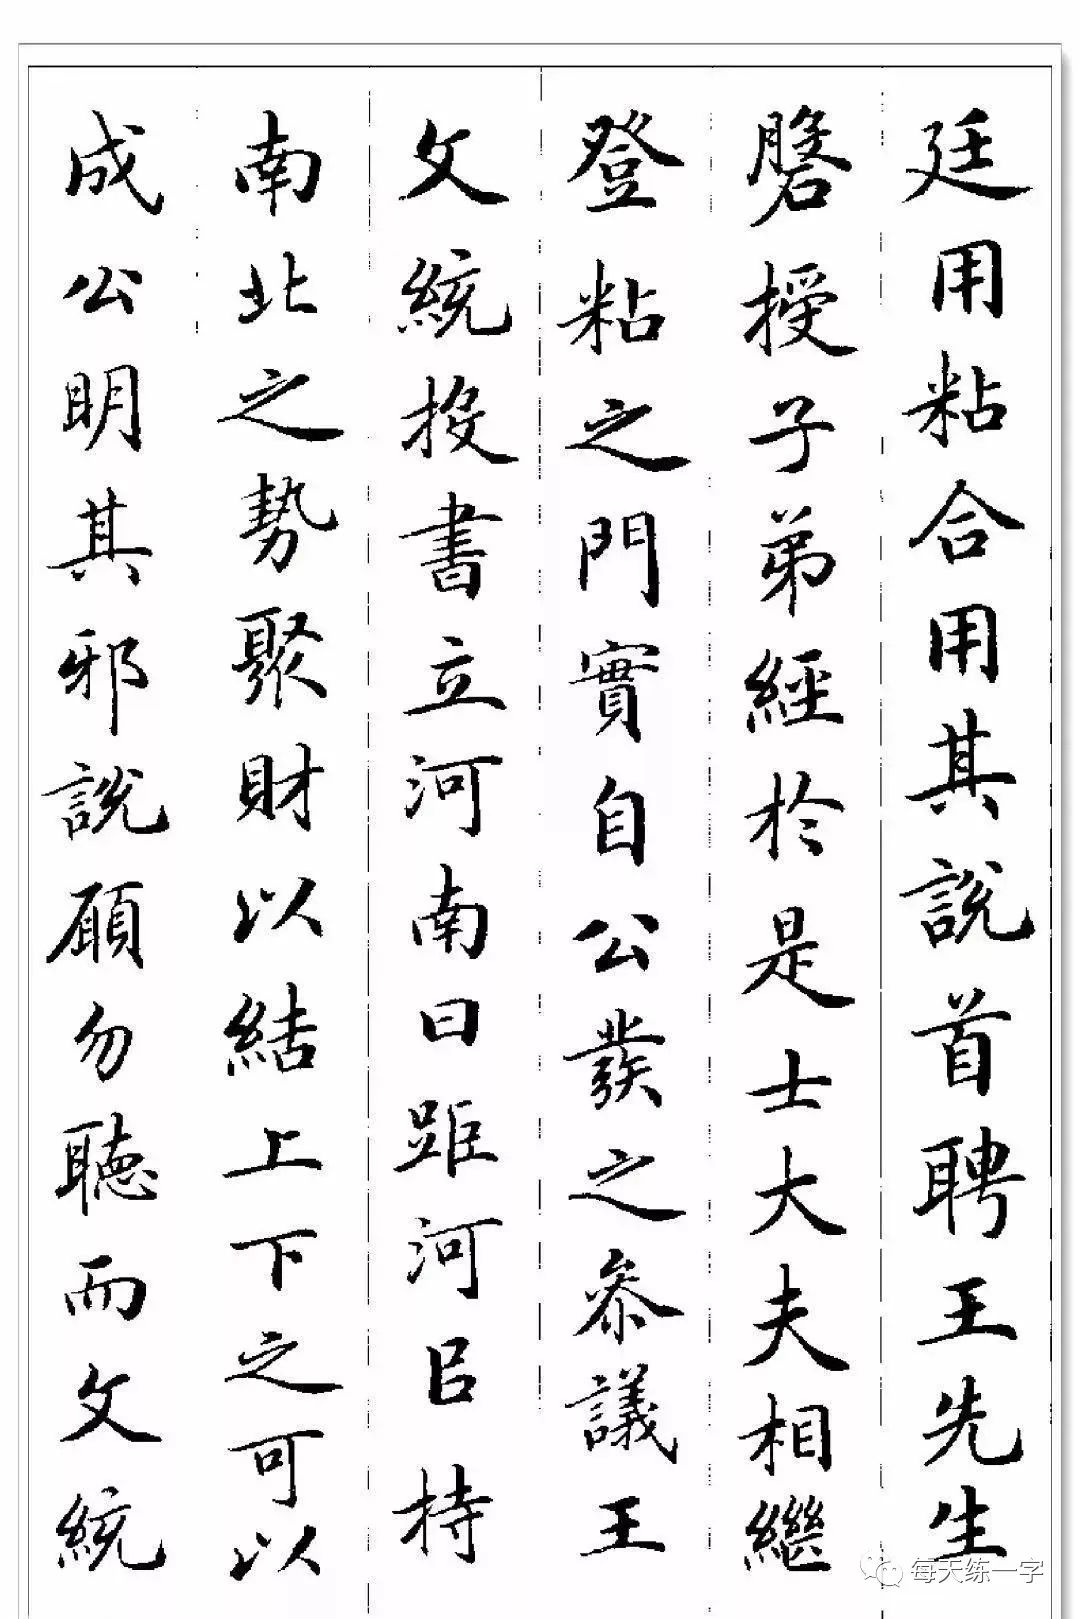 廷用粘合用其說首聘王先生
磐授子弟經於是士大夫相繼
登粘之門實自公發之參議王
文統投書立河南曰距河㠯持
南北之勢聚財以結上下之可以
成公明其邪說願勿聽而文統
每天练一字